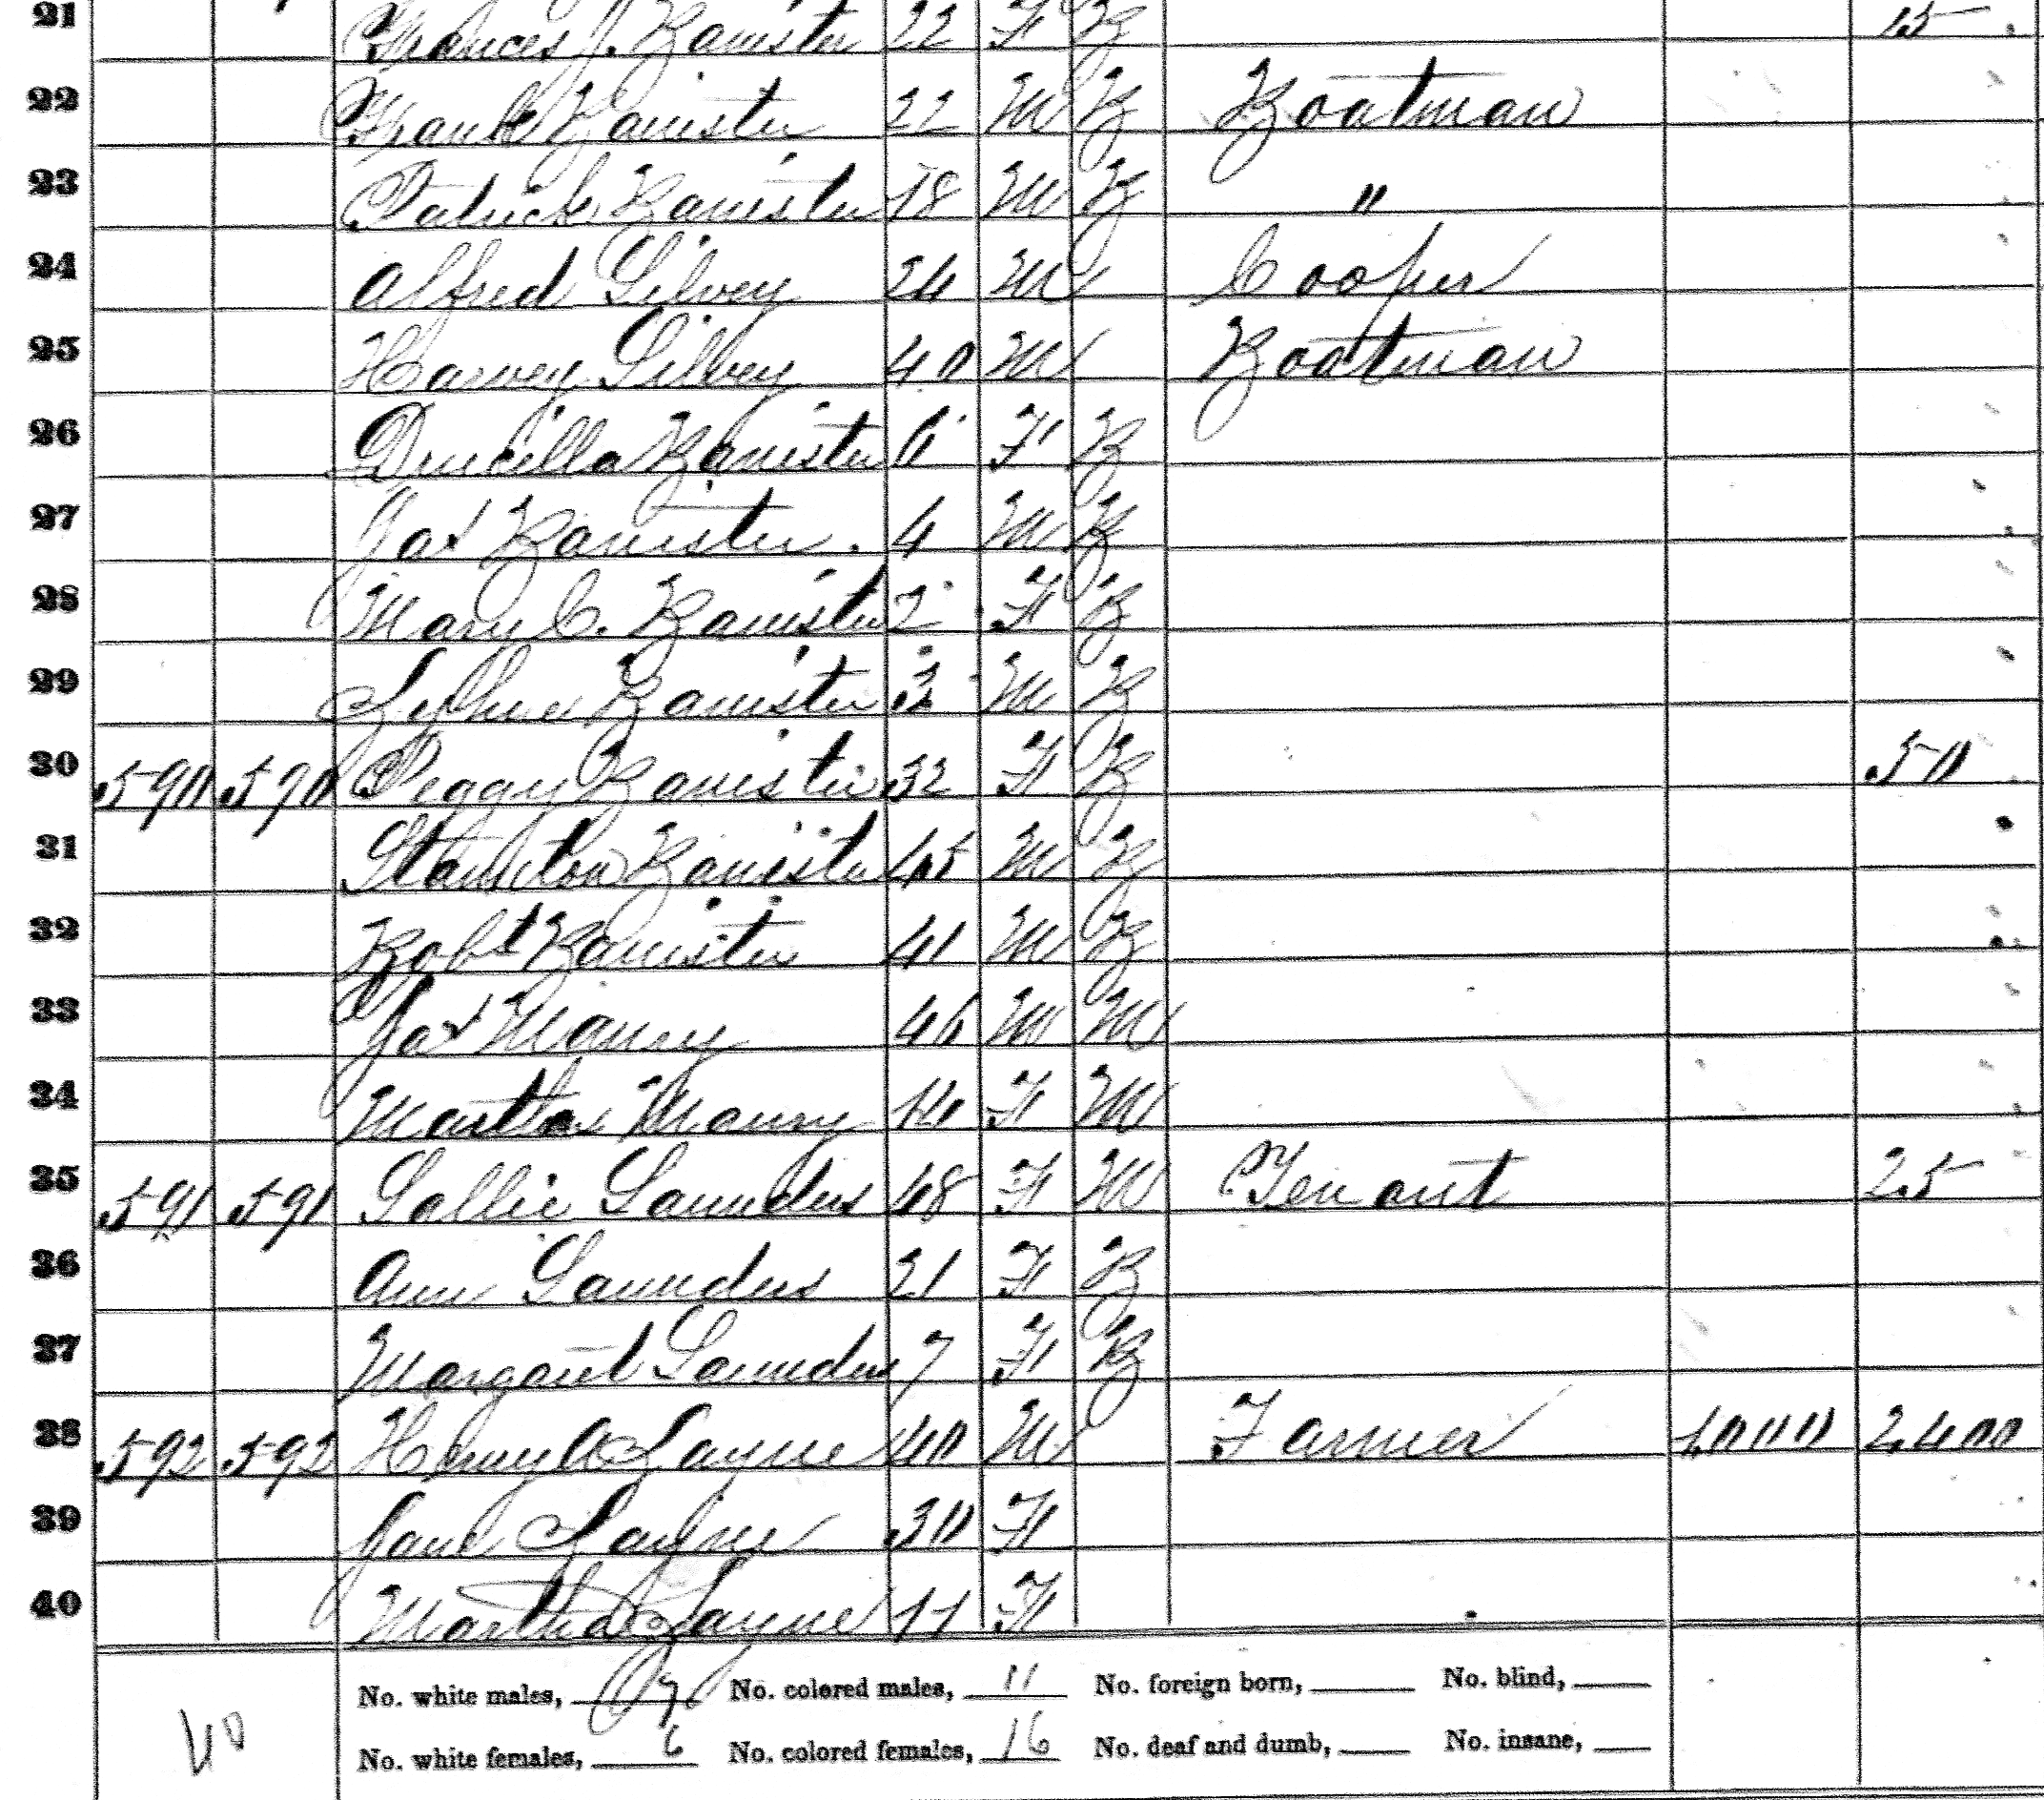 21 Frances J. Banister 22 F B 15
22 Frank Banister 22 M B Boatman
23 Patrick Banister 18 M B "
24 Alfred Silvey 24 M Cooper
25 Harvey Silvey 40 M Boatman
26 Drucilla Banister 6 F B
27 Jas Banister. 4 M B
28 Mary C. Banister 2 F B
29 Banister M B
30 590 590 Peggy Banister 32 F B 50
31 Banister 45 M B
32 Robt Banister 41 M B
33 Jas Maury 46 M M
34 Martha Maury 14 F M
35 591 591 Sallie Saunders 48 F M Tenant 25
36 Ann Saunders 21 F B
37 Margaret Saunders 7 F B
38 592 592 Henry A Layne 40 M Farmer 1000 2400
39 Jane Layne 30 F
40 Martha Layne 11 F
40 No. white males, 7 No. colored males, 11 No. foreign born, No. blind,
No. white females, 6 No. colored females, 16 No. deaf and dumb, No. insane,